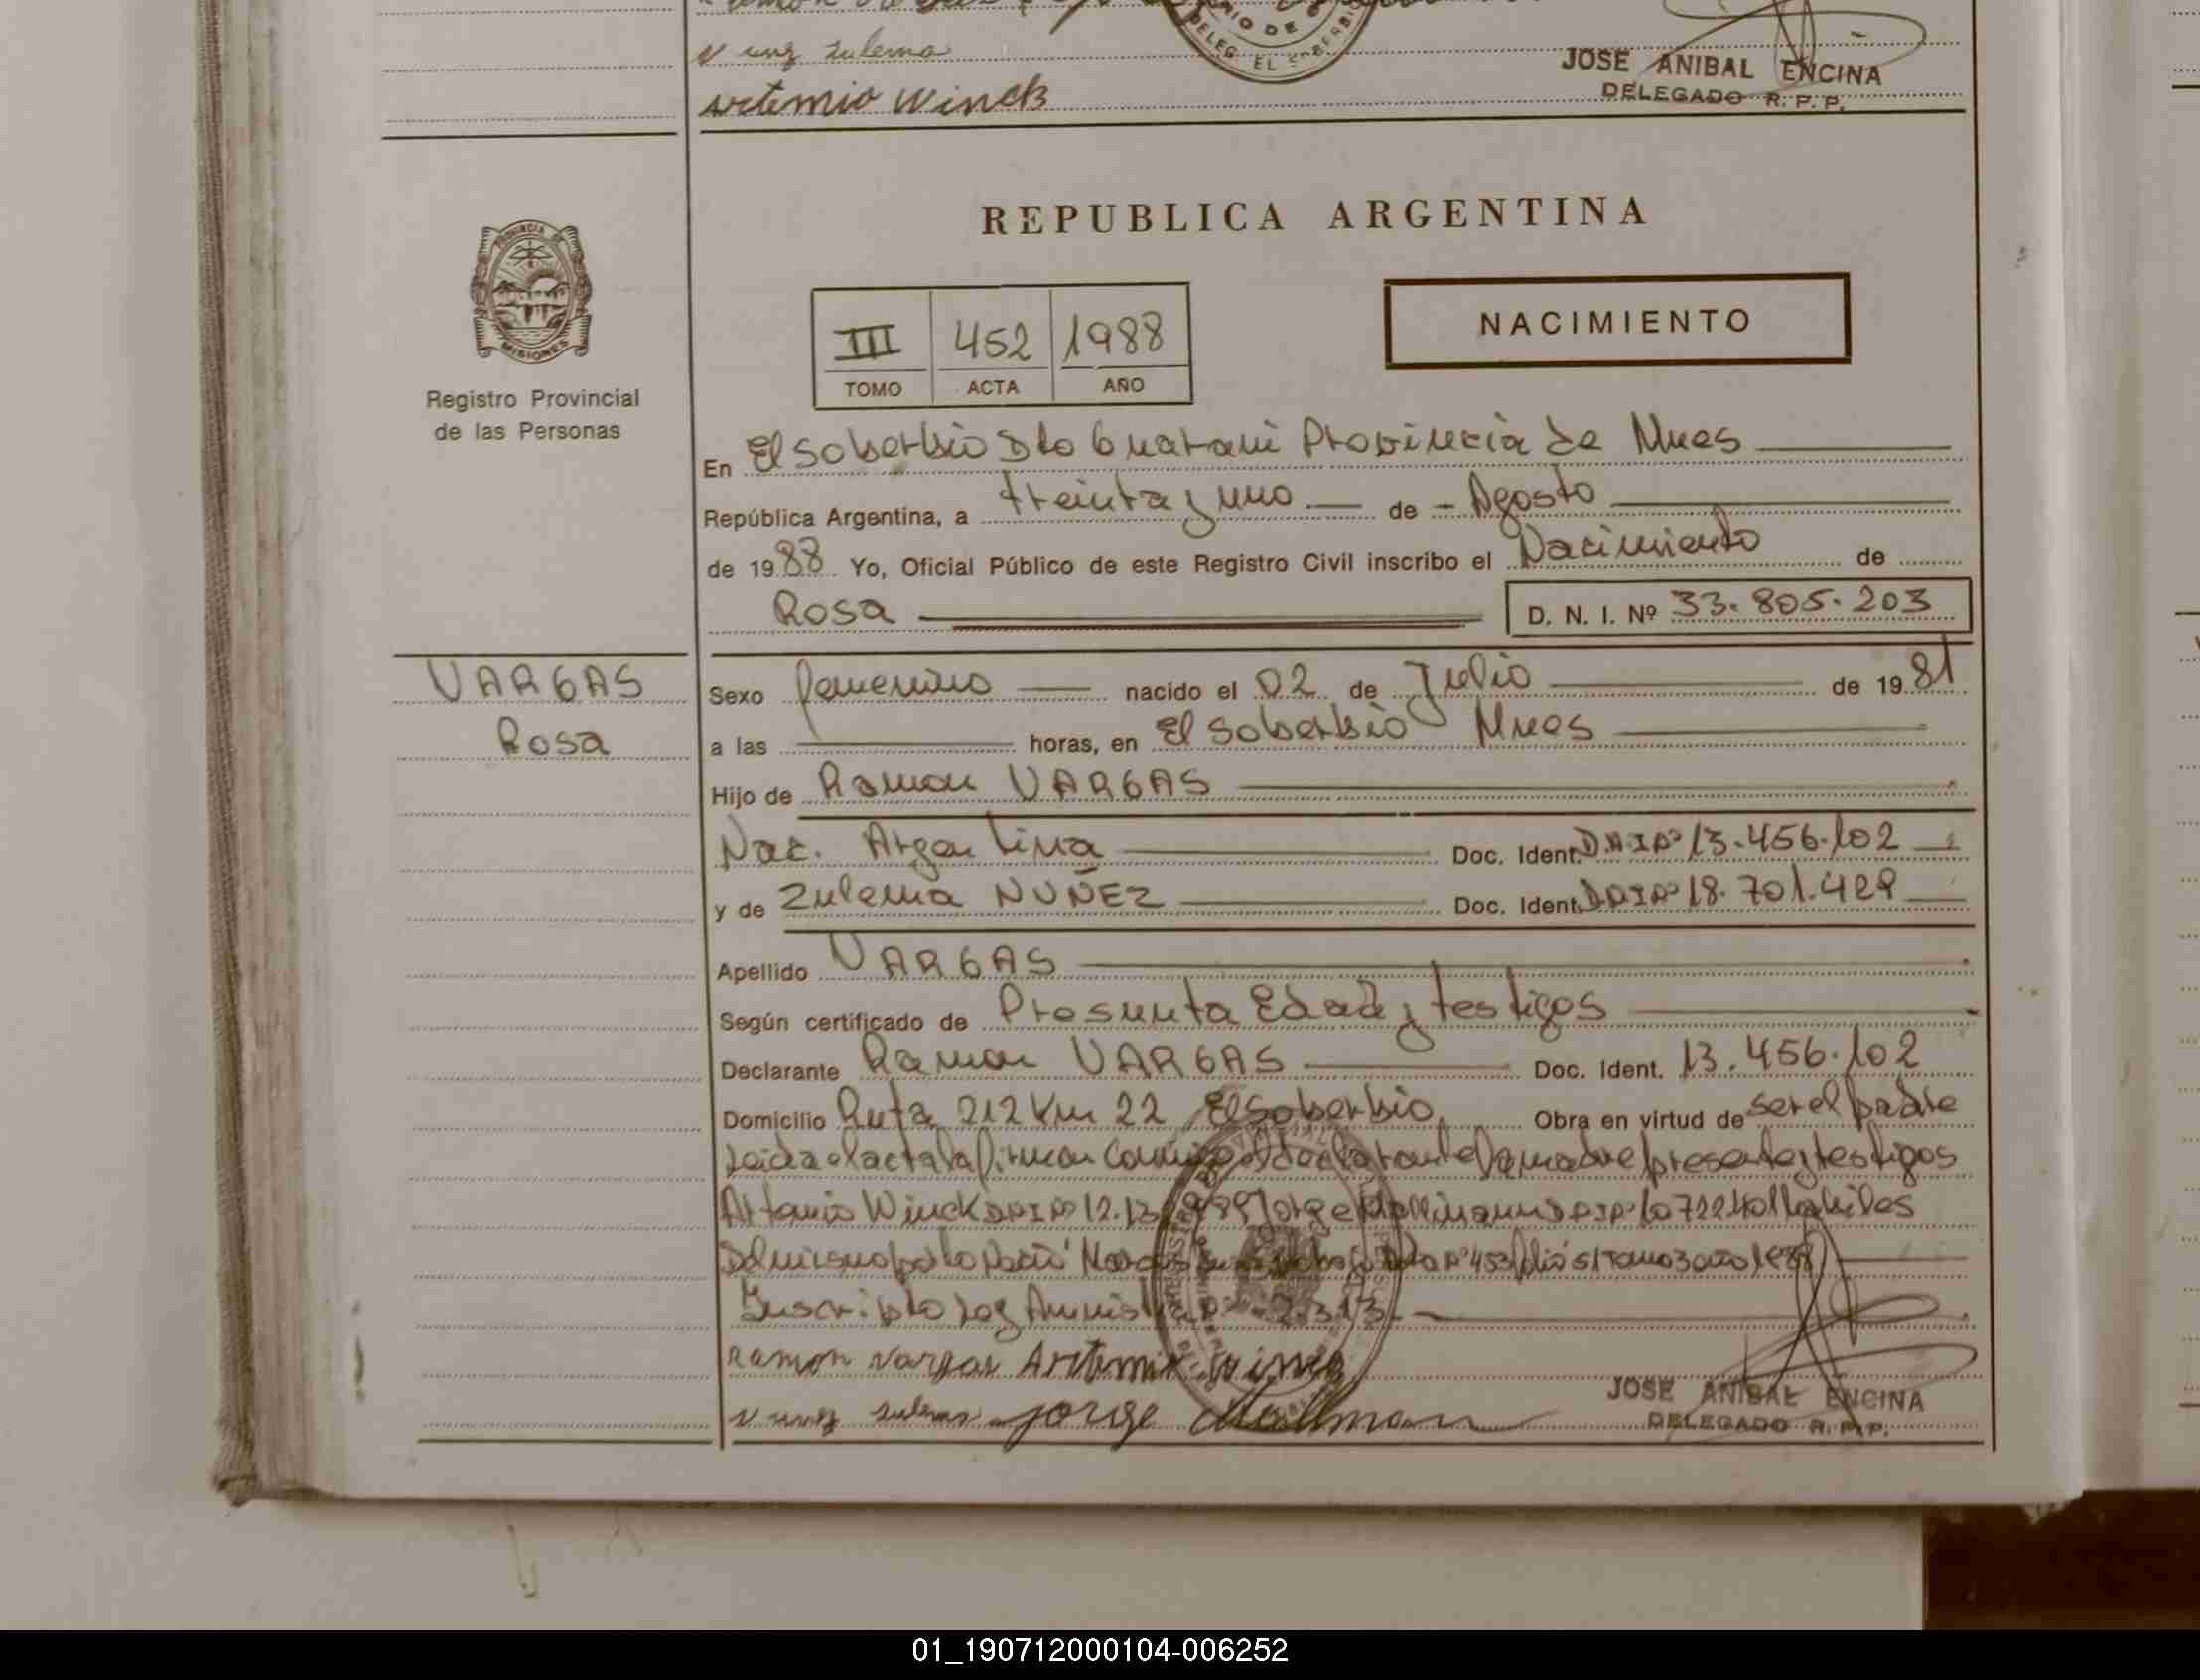 Nuñez Zulema
DELEG. EL SOBERBIO
Artemio Winck
JOSE ANIBAL ENCINA
DELEGADO R. P. P.
REPUBLICA ARGENTINA
PROVINCIA DE
MISIONES
III 452 1988
TOMO ACTA AÑO
NACIMIENTO
Registro Provincial
de las Personas
En El Soberbio Dto Guarani Provincia de Mnes
República Argentina, a treinta y uno de Agosto
de 1988 Yo, Oficial Público de este Registro Civil inscribo el Nacimiento de
Rosa D. N. I. Nº 33.805.203
VARGAS
Rosa
Sexo femenino nacido el 02 de Julio de 1981
a las horas, en El Soberbio Mnes
Hijo de Ramon VARGAS
Nac. Argentina Doc. Ident. DNI Nº 13.456.102
y de Zulema NUÑEZ Doc. Ident. DNI Nº 18.701.429
Apellido VARGAS
Según certificado de Presunta Edad y testigos
Declarante Ramon VARGAS Doc. Ident. 13.456.102
Domicilio Ruta 212 Km 22 El Soberbio Obra en virtud de ser el padre
Leida el acta la firman conmigo el declarante la madre presente y testigos
Winck DNI Nº 12. Jorge DNI Nº
Del mismo parto Nació acta Nº 453 folio 51 Tomo 3 año 1988
Inscripto Ley Amnistia Nº 2.313
Ramon Vargas Artemio Winck
Nuñez Zulema Jorge
JOSE ANIBAL ENCINA
DELEGADO R. P. P.
01_190712000104-006252